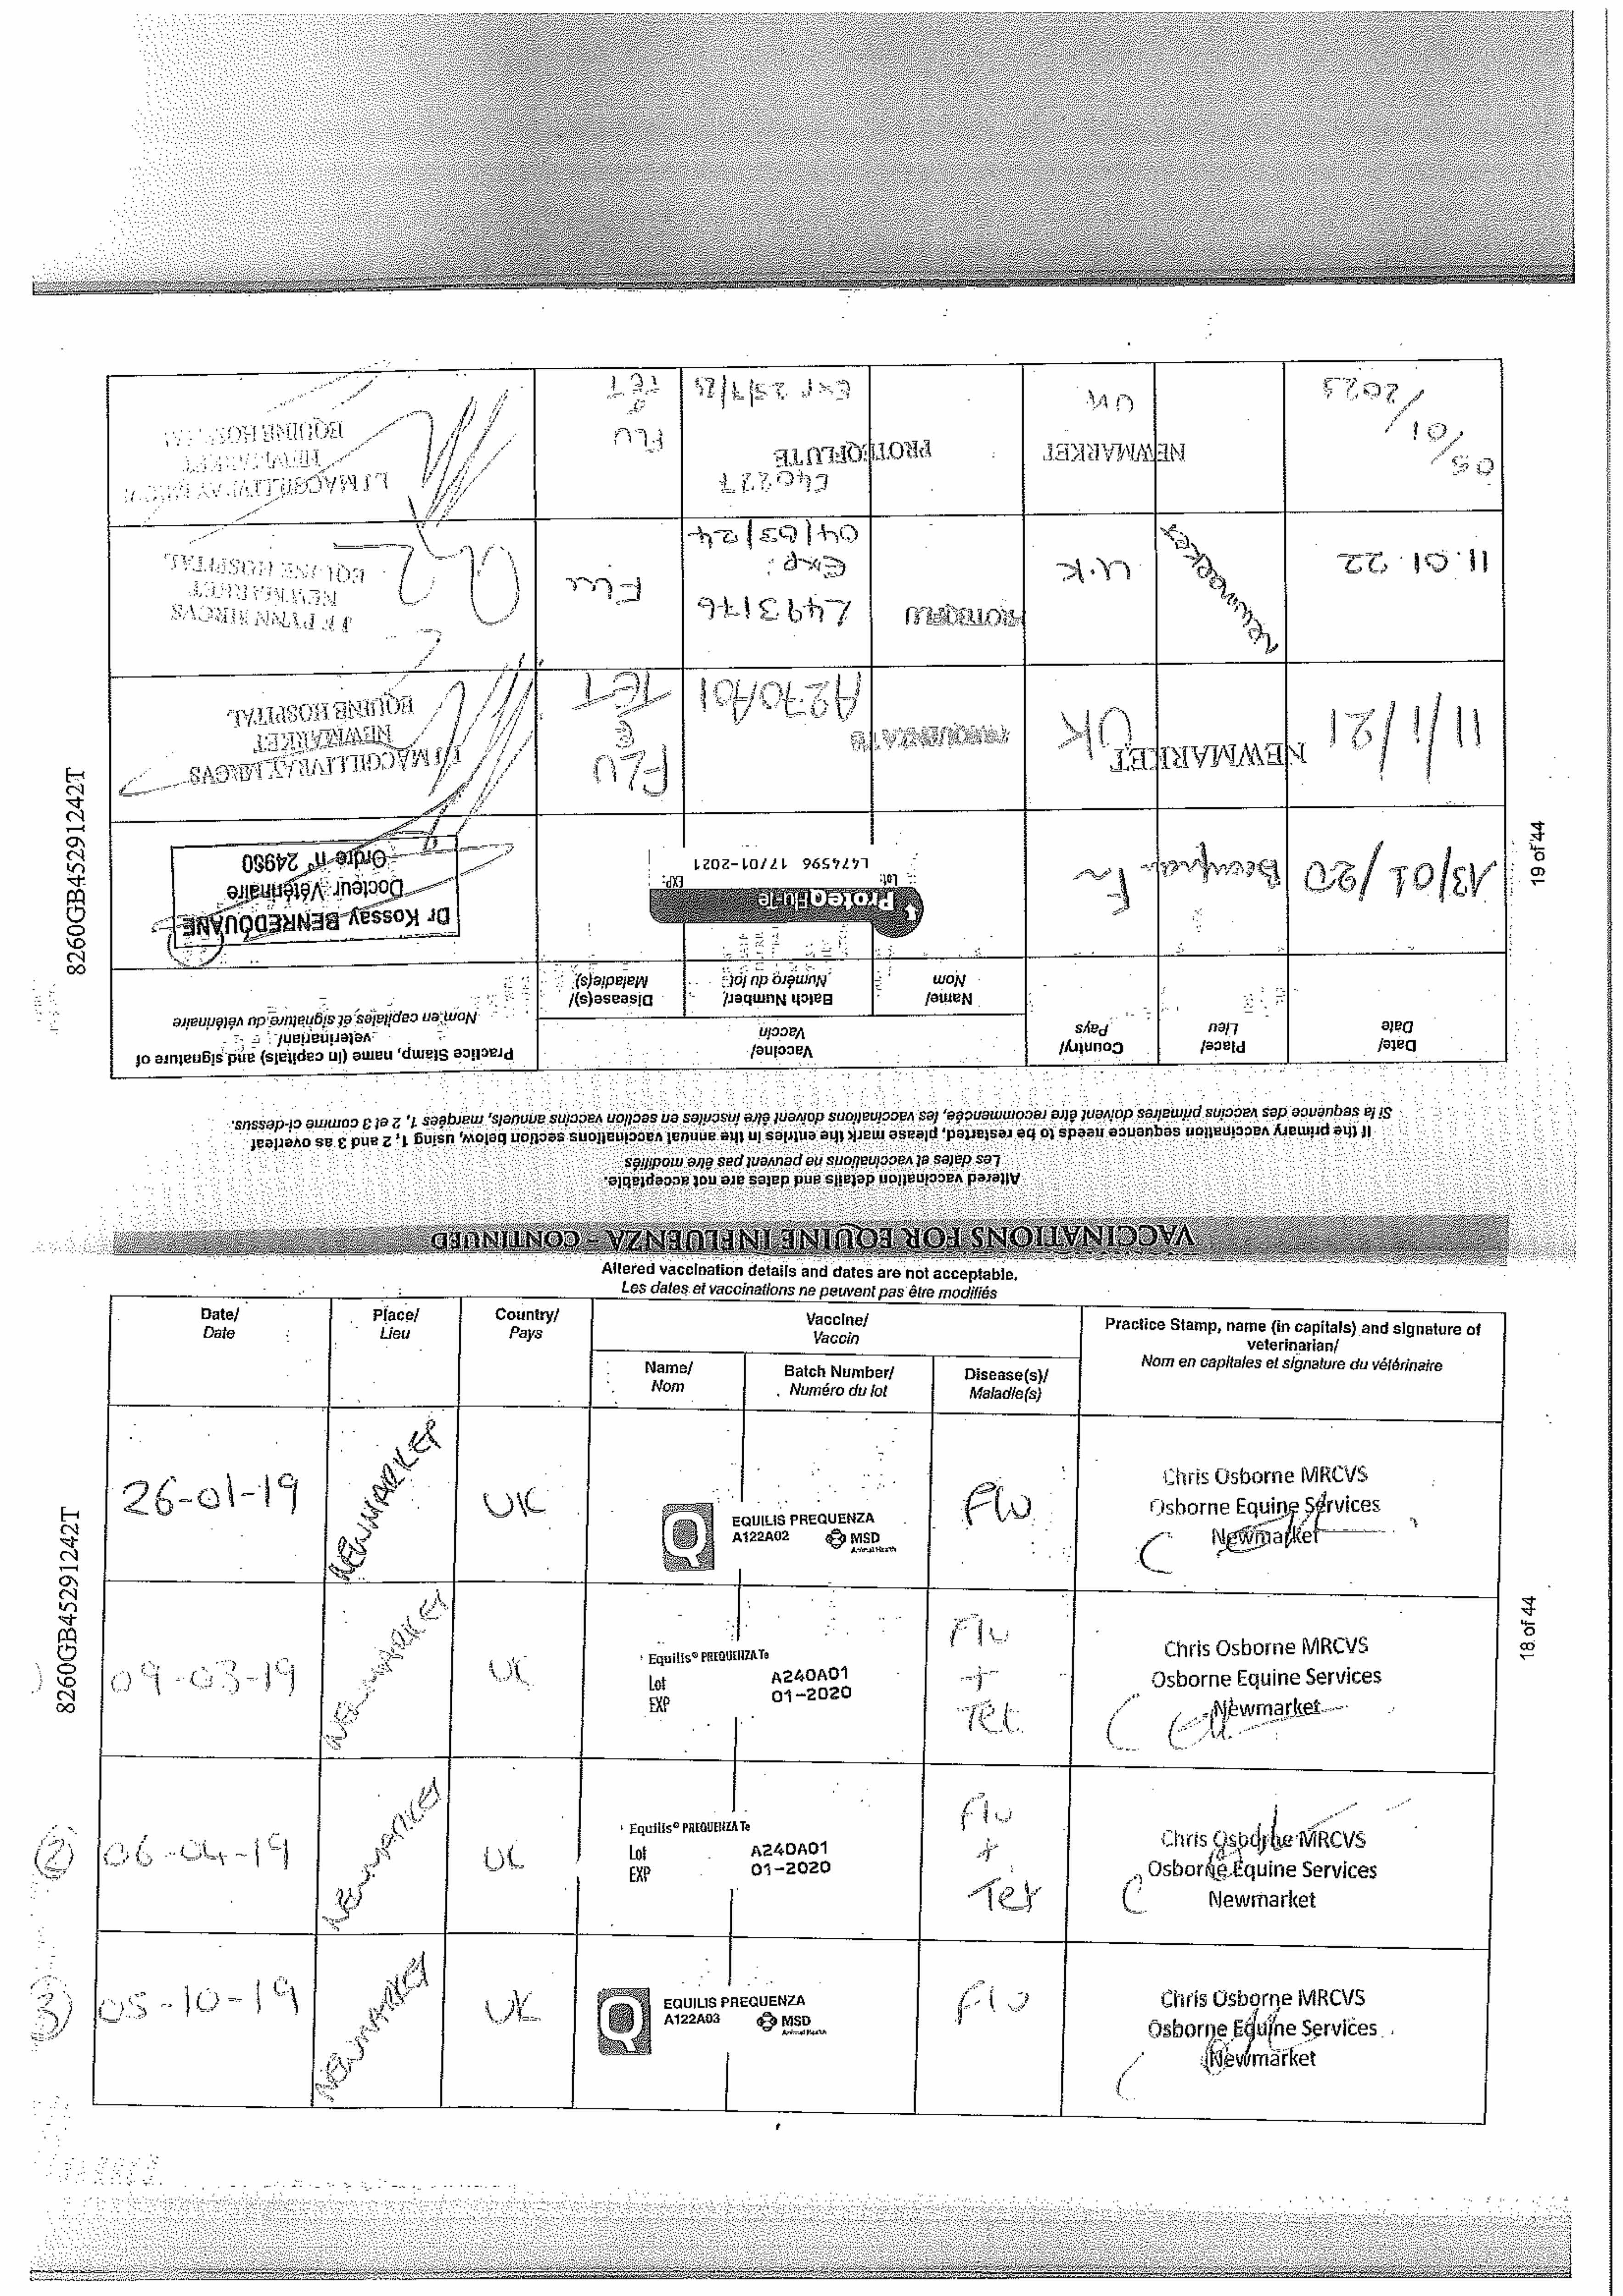 VACCINATIONS FOR EQUINE INFLUENZA – CONTINUED
Altered vaccination details and dates are not acceptable.
Les dates et vaccinations ne peuvent pas être modifiés
If the primary vaccination sequence needs to be restarted, please mark the entries in the annual vaccinations section below, using 1, 2 and 3 as overleaf
Si la sequénce des vaccins primaires doivent être recommencée, les vaccinations doivent être inscrites en section vaccins annuels, marquées 1, 2 et 3 comme ci-dessus.
Date/
Date
Place/
Lieu
Country/
Pays
Vaccine/
Vaccin
Name/
Nom
Batch Number/
Numéro du lot
Disease(s)/
Maladie(s)
Practice Stamp, name (in capitals) and signature of
veterinarian/
Nom en capitales et signature du vétérinaire
13/01/20
Fr
ProteqFlu-Te
Lot: EXP:
L474596 17/01-2021
Dr Kossay BENREDOUANE
Docteur Vétérinaire
Ordre n° 24980
11/1/21
NEWMARKET
UK
A270A01
FLU
&
TET
LJ MACGILLIVRAY MRCVS
NEWMARKET
EQUINE HOSPITAL
11.01.22
Newmarket
U.K
PROTEQFLU
L493176
Exp:
04/03/24
Flu
J F PYNN MRCVS
NEWMARKET
EQUINE HOSPITAL
05/01/2023
NEWMARKET
UK
PROTEQFLUTE
E40227
Exp 25/7/23
FLU
&
TET
LJ MACGILLIVRAY MRCVS
NEWMARKET
EQUINE HOSPITAL
8260GB45291242T
19 of 44
Altered vaccination details and dates are not acceptable.
Les dates et vaccinations ne peuvent pas être modifiés
Date/
Date
Place/
Lieu
Country/
Pays
Vaccine/
Vaccin
Name/
Nom
Batch Number/
Numéro du lot
Disease(s)/
Maladie(s)
Practice Stamp, name (in capitals) and signature of
veterinarian/
Nom en capitales et signature du vétérinaire
26-01-19
NEWMARKET
UK
Q
EQUILIS PREQUENZA
A122A02 MSD
Animal Health
Flu
Chris Osborne MRCVS
Osborne Equine Services
Newmarket
09-03-19
NEWMARKET
UK
Equilis® PREQUENZA Te
Lot A240A01
EXP 01-2020
Flu
+
Tet
Chris Osborne MRCVS
Osborne Equine Services
Newmarket
2 06-04-19
NEWMARKET
UK
Equilis® PREQUENZA Te
Lot A240A01
EXP 01-2020
Flu
+
Tet
Chris Osborne MRCVS
Osborne Equine Services
Newmarket
3 05-10-19
NEWMARKET
UK
Q
EQUILIS PREQUENZA
A122A03 MSD
Animal Health
Flu
Chris Osborne MRCVS
Osborne Equine Services
Newmarket
8260GB45291242T
18 of 44